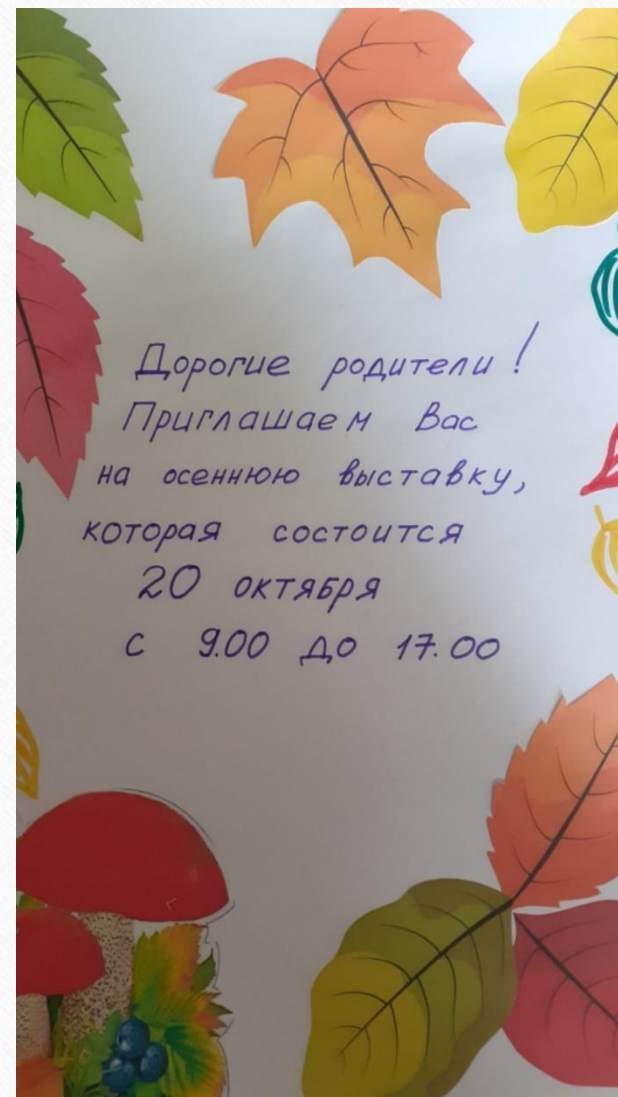 Дорогие родители!
Приглашаем Вас
на осеннюю выставку,
которая состоится
20 октября
с 9.00 до 17.00